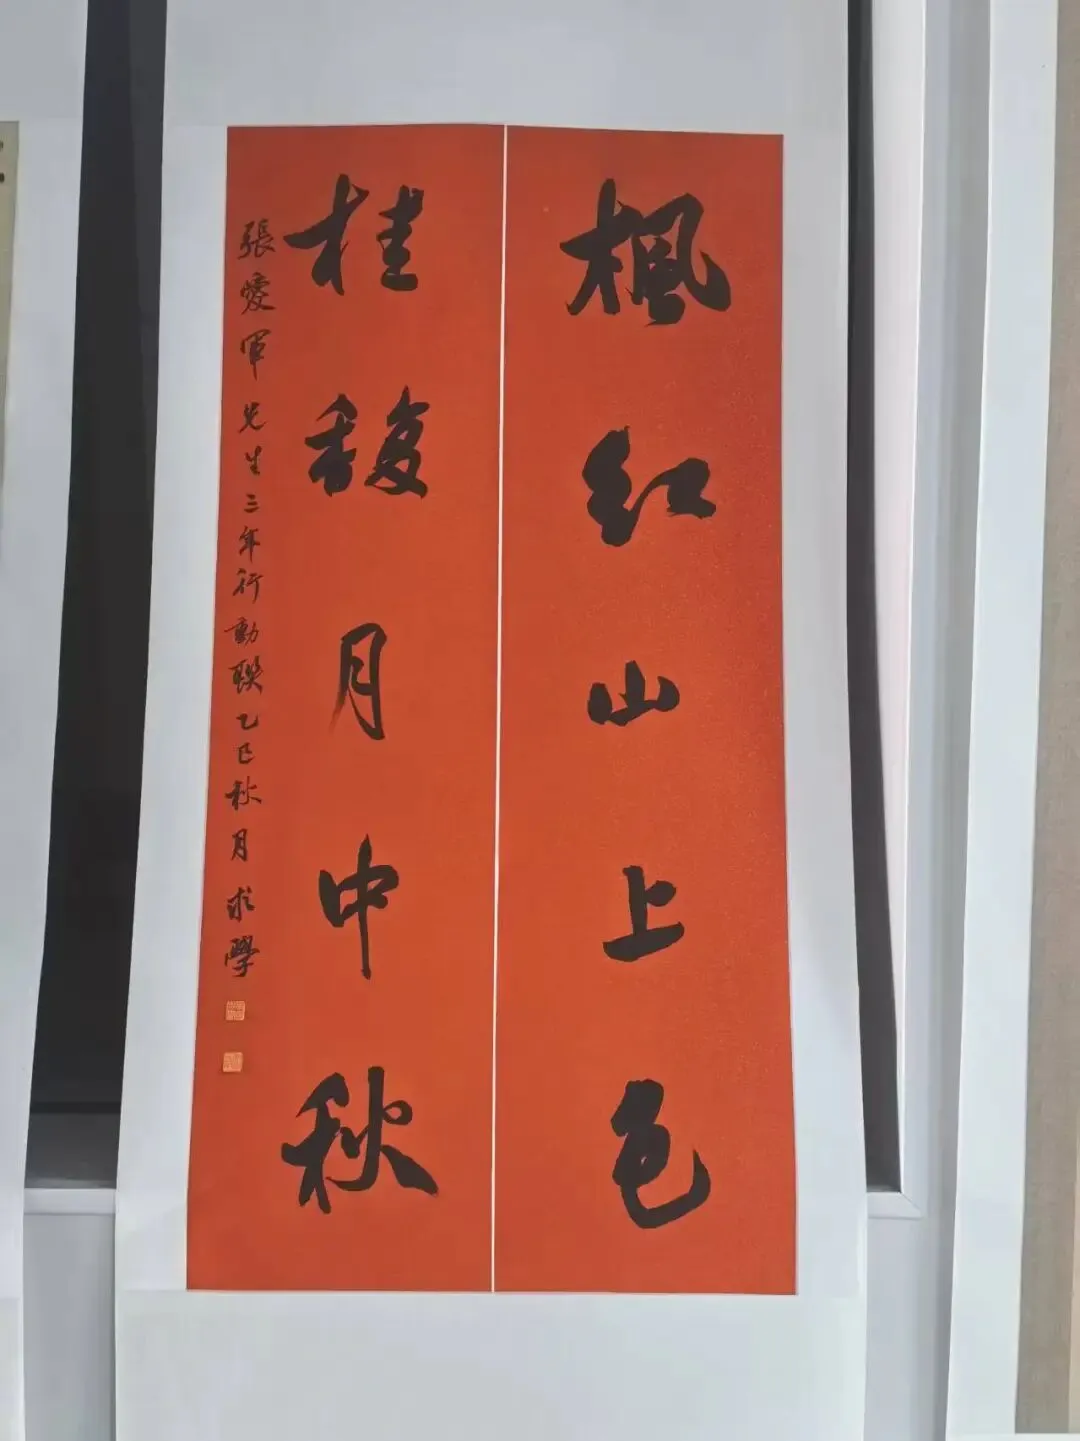 楓红山上色
桂馥月中秋
張愛軍先生三年行動聯乙巳秋月求學